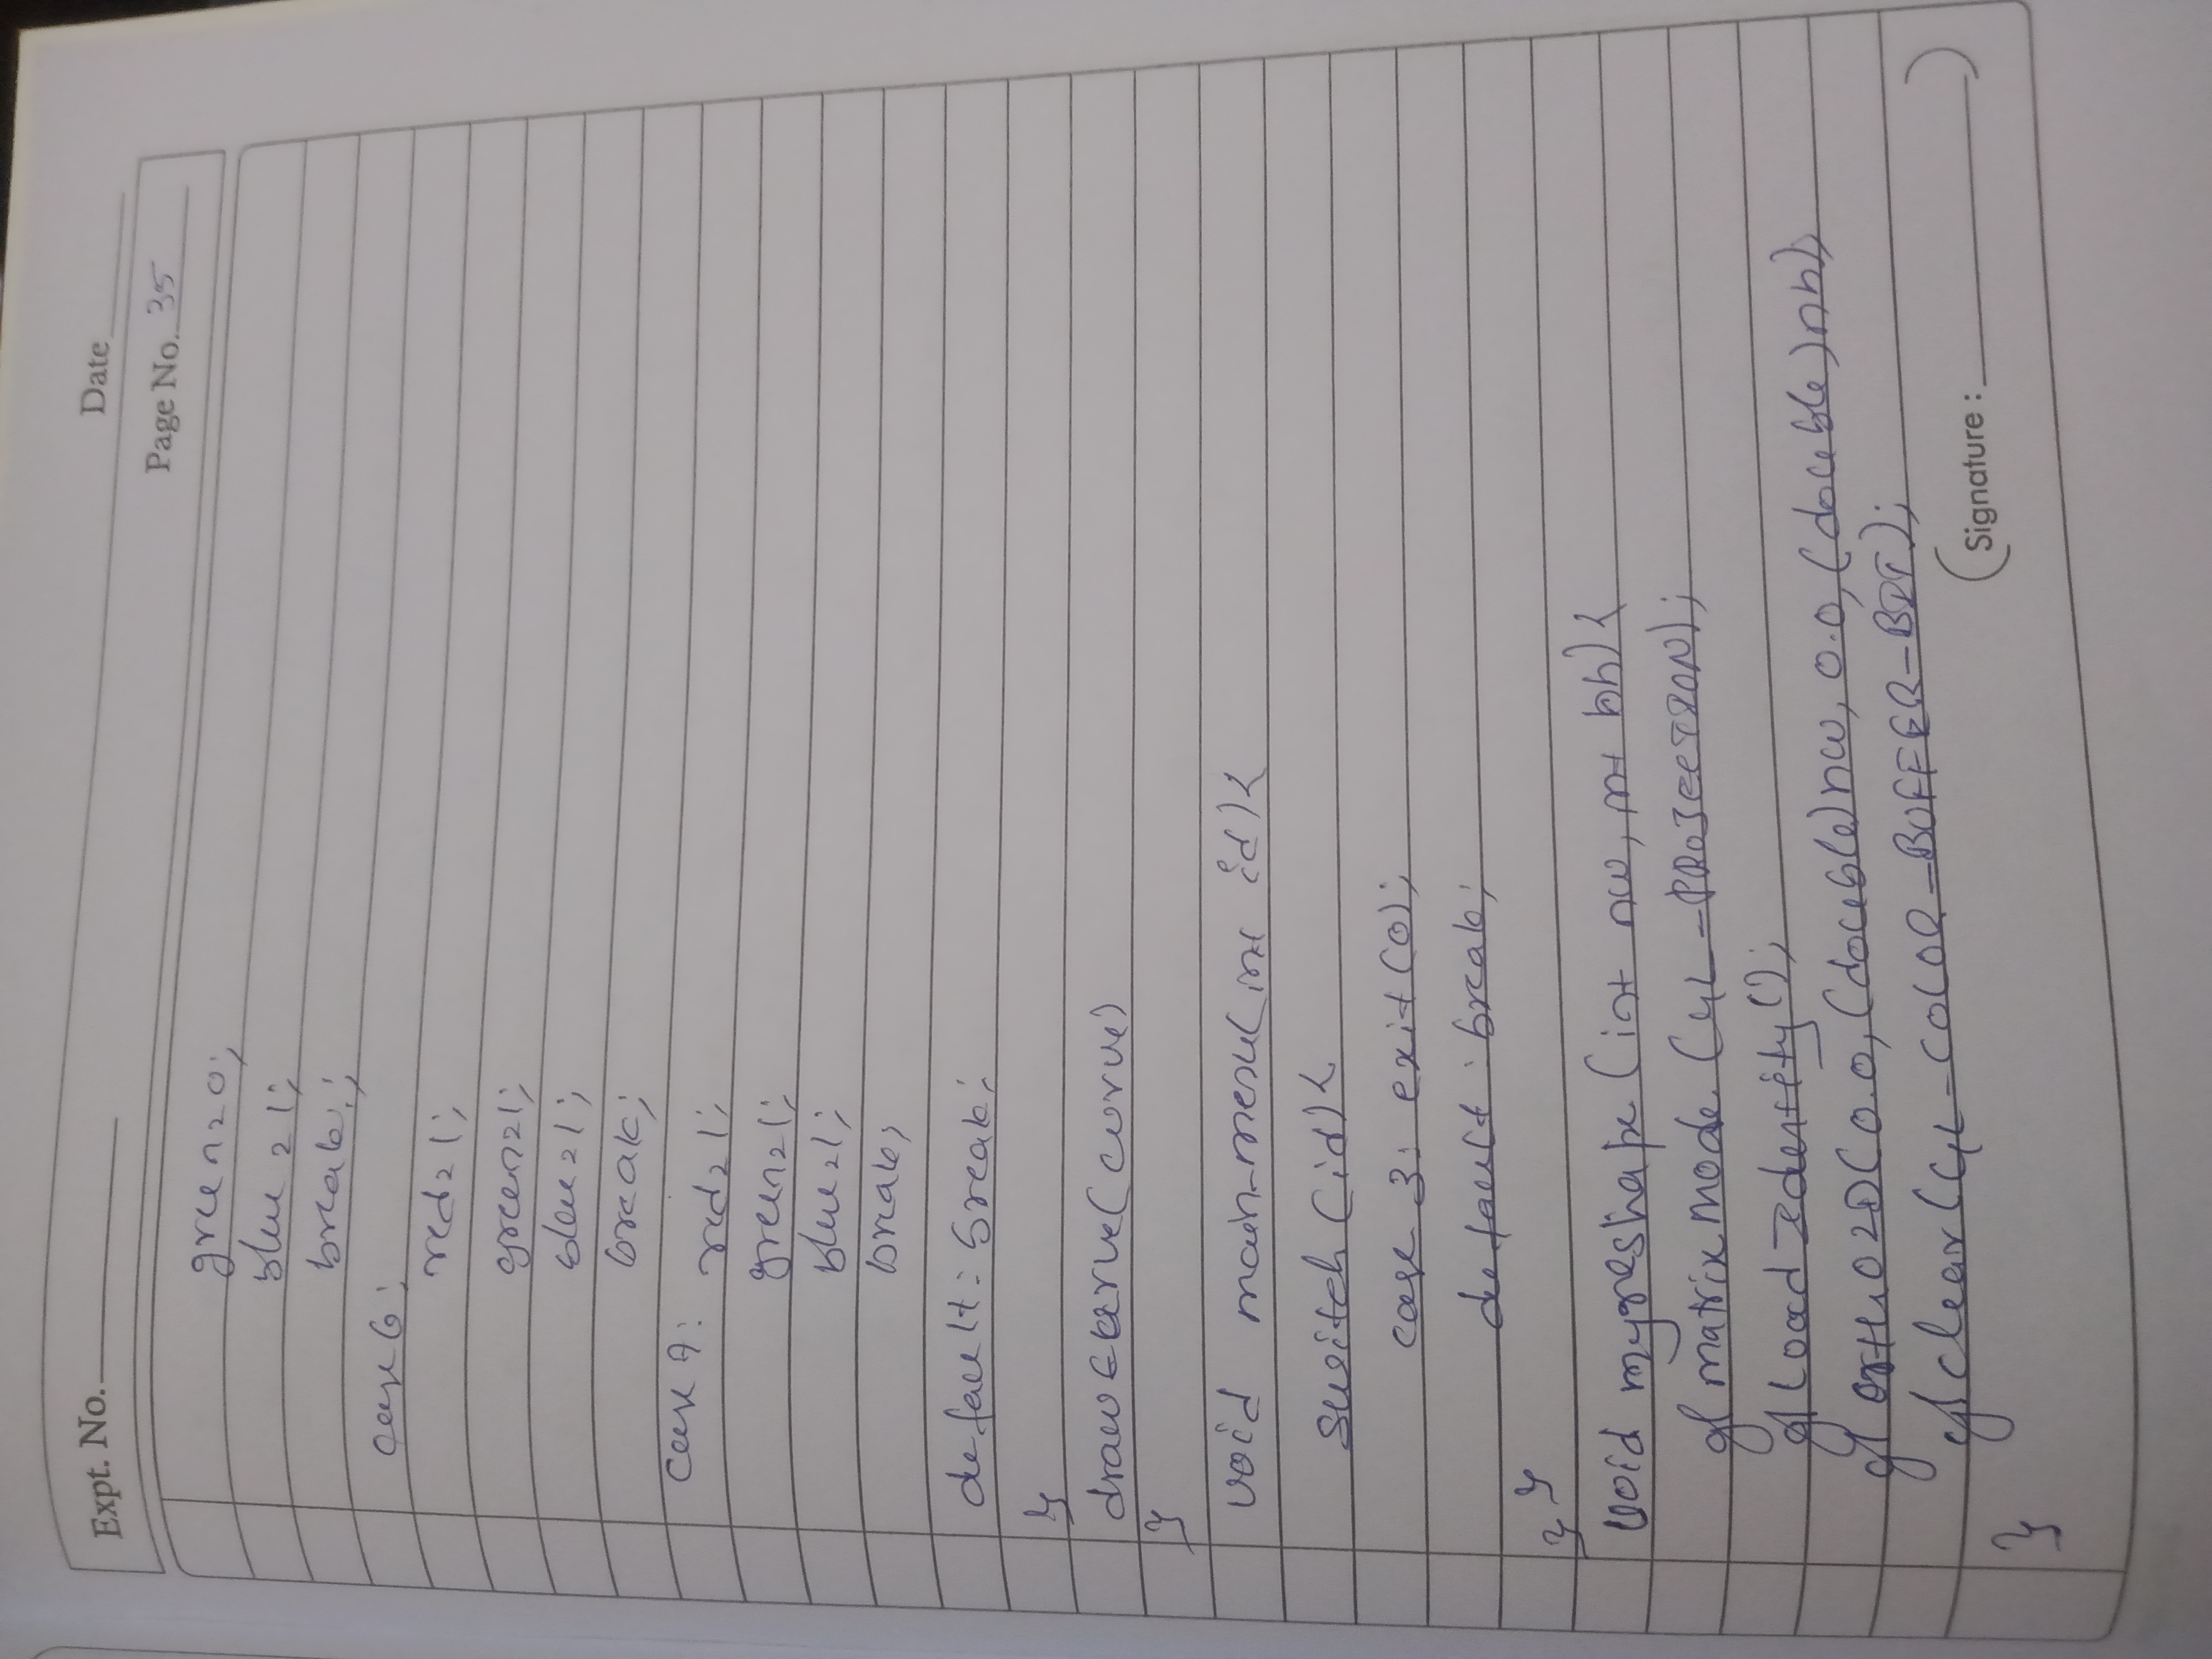 Expt. No.
Date
Page No. 35
green=0;
blue=1;
break;
case 6:
red=1;
green=1;
blue=1;
break;
case 7:
red=1;
green=1;
blue=1;
break;
default: break;
}
drawcurve(curve)
}
void main-menu(int id){
switch(id){
case 3: exit(0);
default: break;
} }
void myreshape(int nw, int nh){
glmatrixmode(GL-PROJECTION);
glLoadIdentity();
glortho2D(0.0,(double)nw,0.0,(double)nh);
glclear(GL-COLOR-BUFFER-BIT);
}
(Signature: )